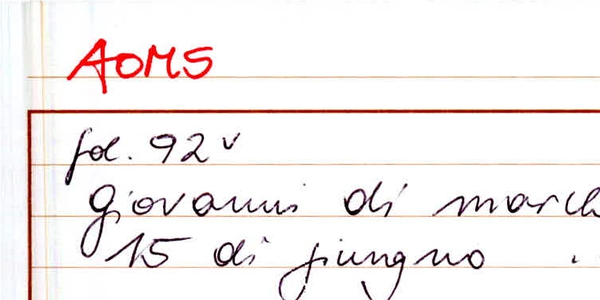 AOMS
fol. 92v
giovanni di march
15 di giungno